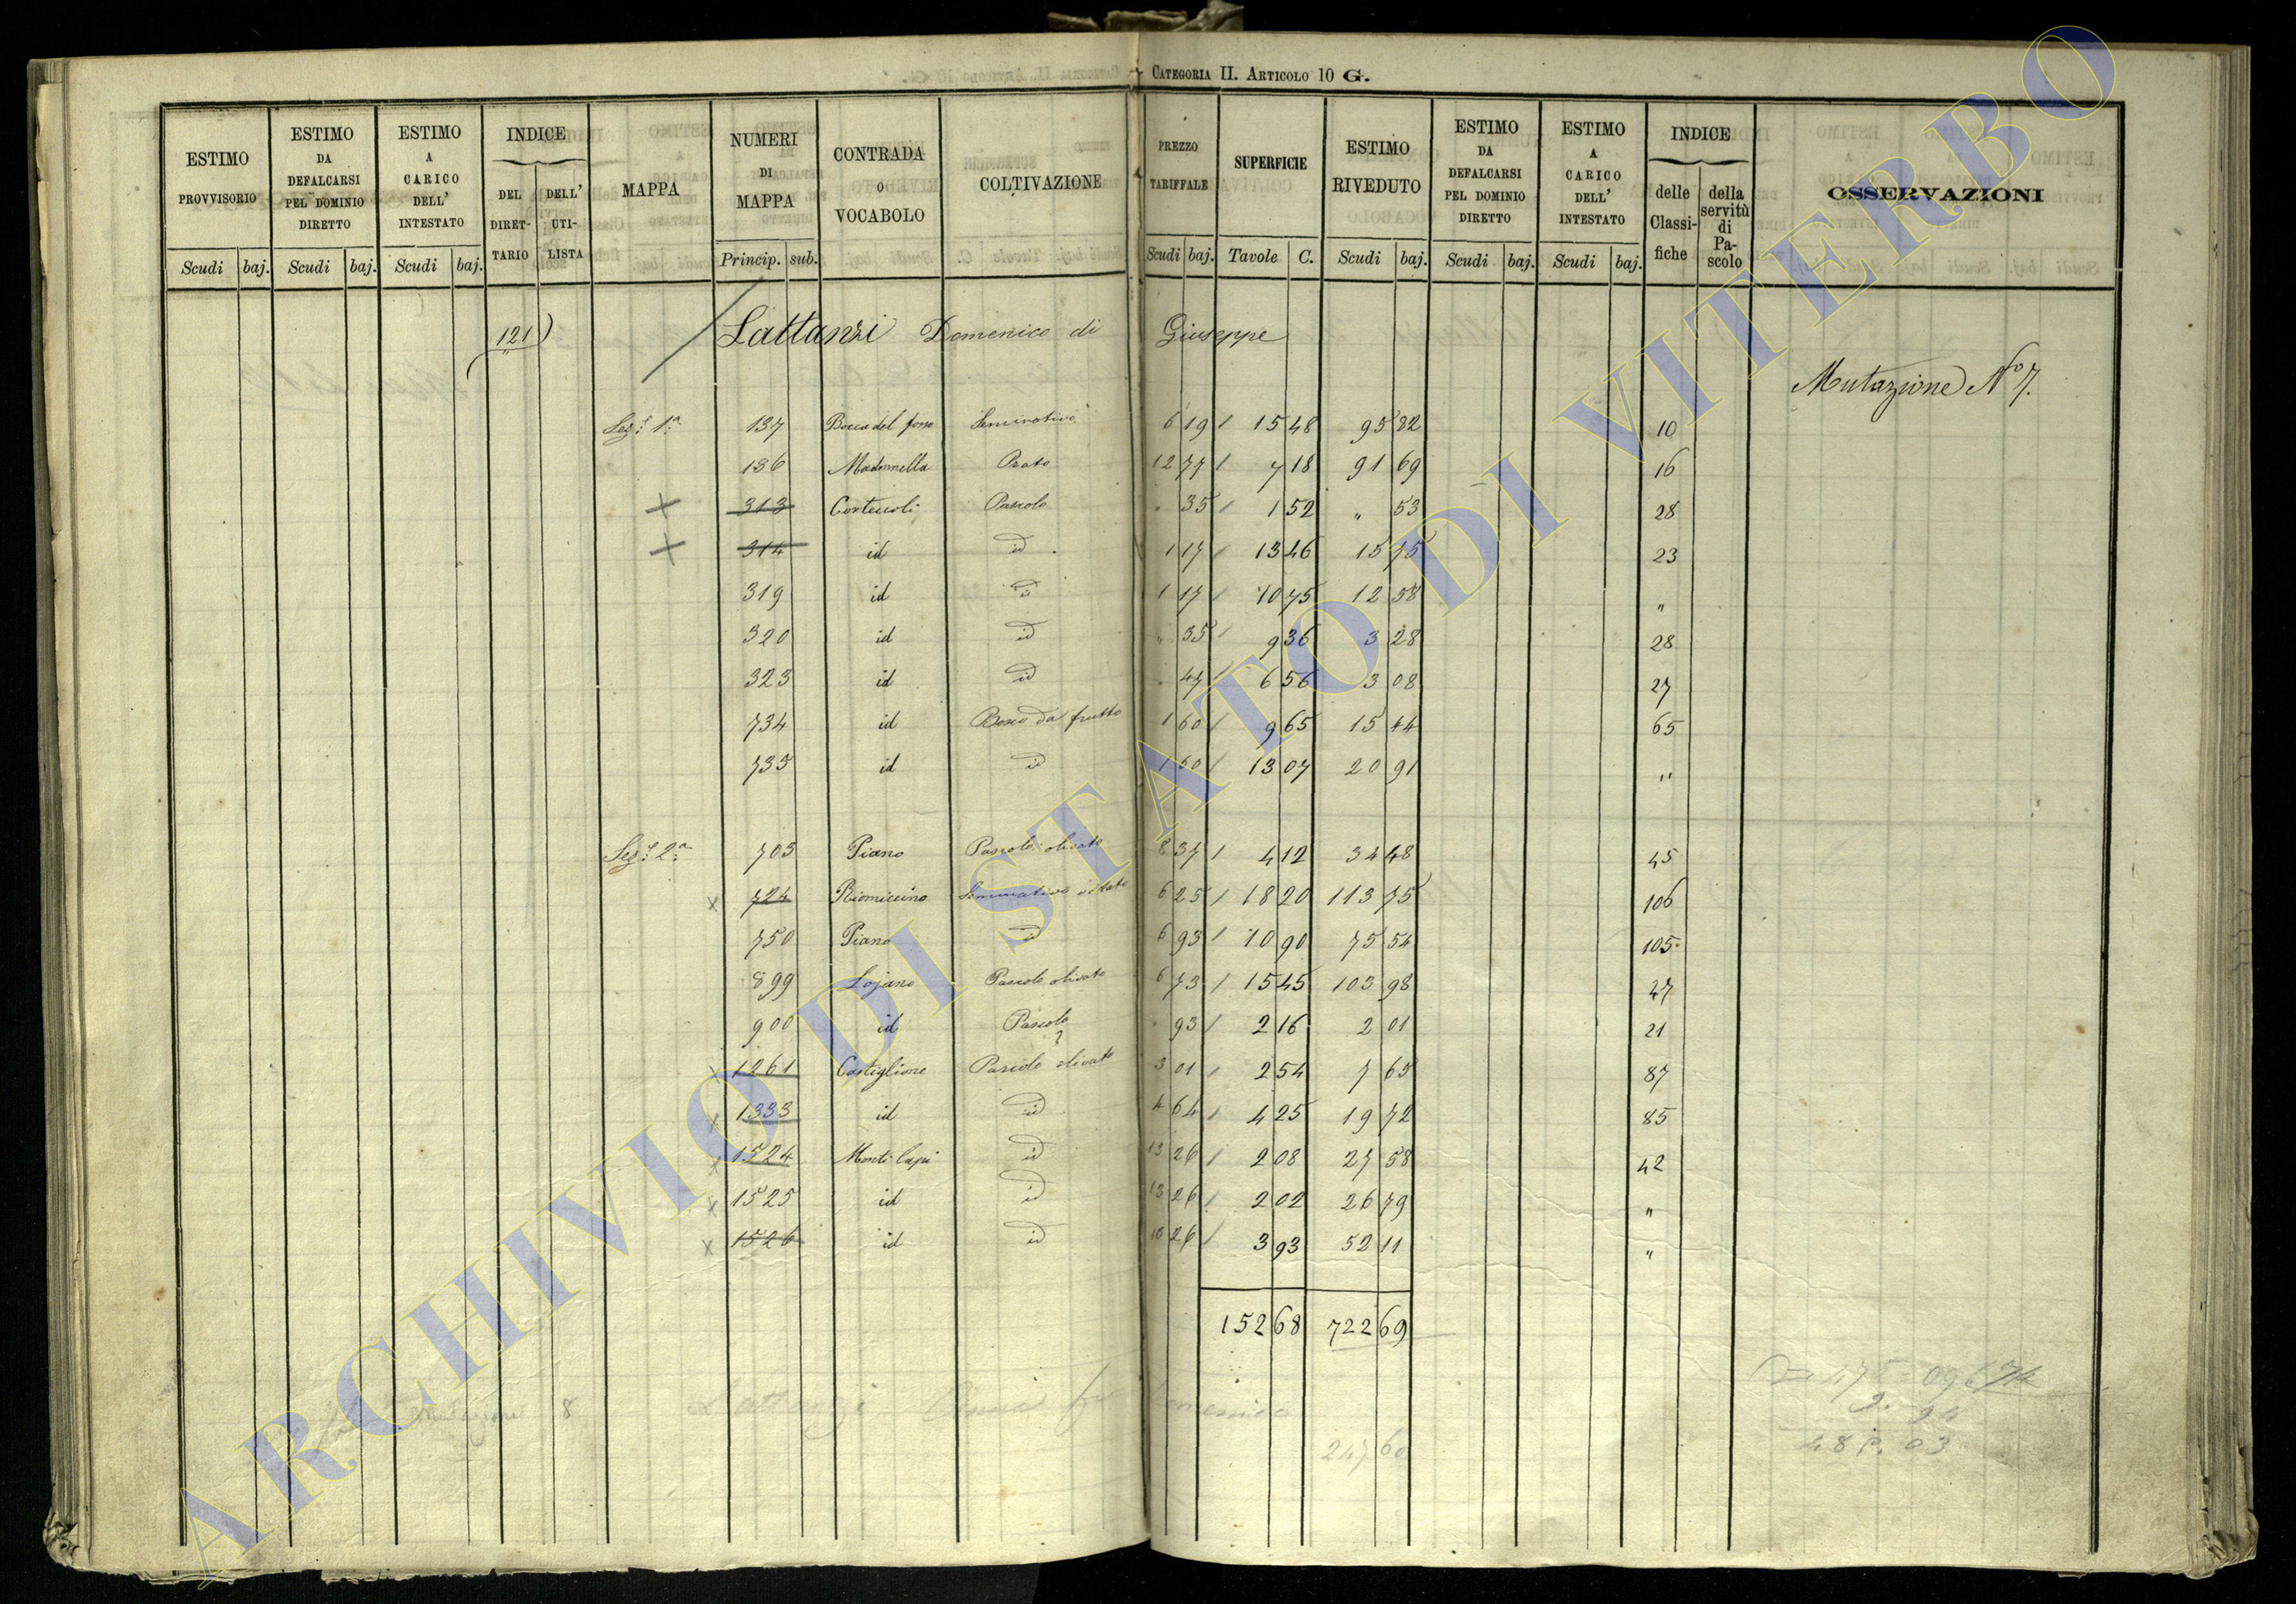 CATEGORIA II. ARTICOLO 10 G.
ESTIMO PROVVISORIO Scudi baj.
ESTIMO DA DEFALCARSI PEL DOMINIO DIRETTO Scudi baj.
ESTIMO A CARICO DELL' INTESTATO Scudi baj.
INDICE DEL DIRETTARIO DELL' UTILISTA
MAPPA
NUMERI DI MAPPA Princip. sub.
CONTRADA O VOCABOLO
COLTIVAZIONE
PREZZO TARIFFALE Scudi baj.
SUPERFICIE Tavole C.
ESTIMO RIVEDUTO Scudi baj.
ESTIMO DA DEFALCARSI PEL DOMINIO DIRETTO Scudi baj.
ESTIMO A CARICO DELL' INTESTATO Scudi baj.
INDICE delle Classifiche della servitù di Pascolo
OSSERVAZIONI
121 Lattanzi Domenico di Giuseppe
Mutazione N° 7.
Sez: 1ª 137 Bocca del fosso Seminativo 6 19 15 48 95 82 10
136 Madonnella Prato 12 77 7 18 91 69 16
313 Cortecoli Pascolo 35 1 52 " 53 28
314 id id 1 17 13 46 15 75 23
319 id id 1 17 10 75 12 58 "
320 id id " 35 9 36 3 28 28
323 id id 47 6 56 3 08 27
734 id Bosco da frutto 1 60 9 65 15 44 65
735 id id 1 60 13 07 20 91 "
Sez: 2ª 703 Piano Pascolo olivato 8 37 4 12 34 48 45
724 Riomiccino Seminativo vitato 6 25 18 20 113 75 106
750 Piano id 6 93 10 90 75 54 105
899 Lojano Pascolo olivato 6 73 15 45 103 98 27
900 id Pascolo 93 2 16 2 01 21
1261 Castiglione Pascolo olivato 3 01 2 54 7 65 87
1333 id id 4 64 4 25 19 72 85
1524 Monti Lupi id 13 26 2 08 27 58 42
1525 id id 13 26 2 02 26 79 "
1526 id id 13 26 3 93 52 11 "
152 68 722 69
8 Lattanzi
247 60
ARCHIVIO DI STATO DI VITERBO